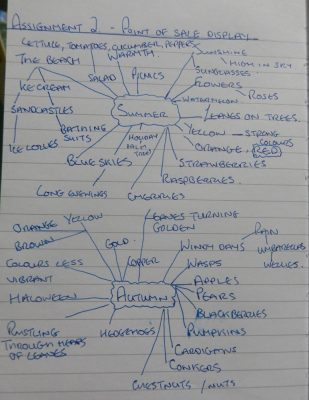 ASSIGNMENT 2 - POINT OF SALE DISPLAY
LETTUCE, TOMATOES, CUCUMBER, PEPPERS
SUNSHINE
THE BEACH
WARMTH
HIGH IN SKY
SALAD
PICNICS
SUNGLASSES
FLOWERS
ICE CREAM
ROSES
WATERMELON
SUMMER
SANDCASTLES
LEAVES ON TREES.
BATHING SUITS
HOLIDAY
PALM TREES
YELLOW - STRONG COLOURS
ICE LOLLIES
ORANGE, RED
BLUE SKIES
STRAWBERRIES
RASPBERRIES.
LONG EVENINGS
CHERRIES
LEAVES TURNING GOLDEN
ORANGE YELLOW
BROWN
GOLD
WINDY DAYS
RAIN
UMBRELLAS
WELLIES.
COLOURS LESS VIBRANT
COPPER
WASPS
AUTUMN
APPLES
HALOWEEN
PEARS
BLACKBERRIES
RUSTLING THROUGH HEAPS OF LEAVES
HEDGEHOGS
PUMPKINS
CARDIGANS
CONKERS
CHESTNUTS / NUTS